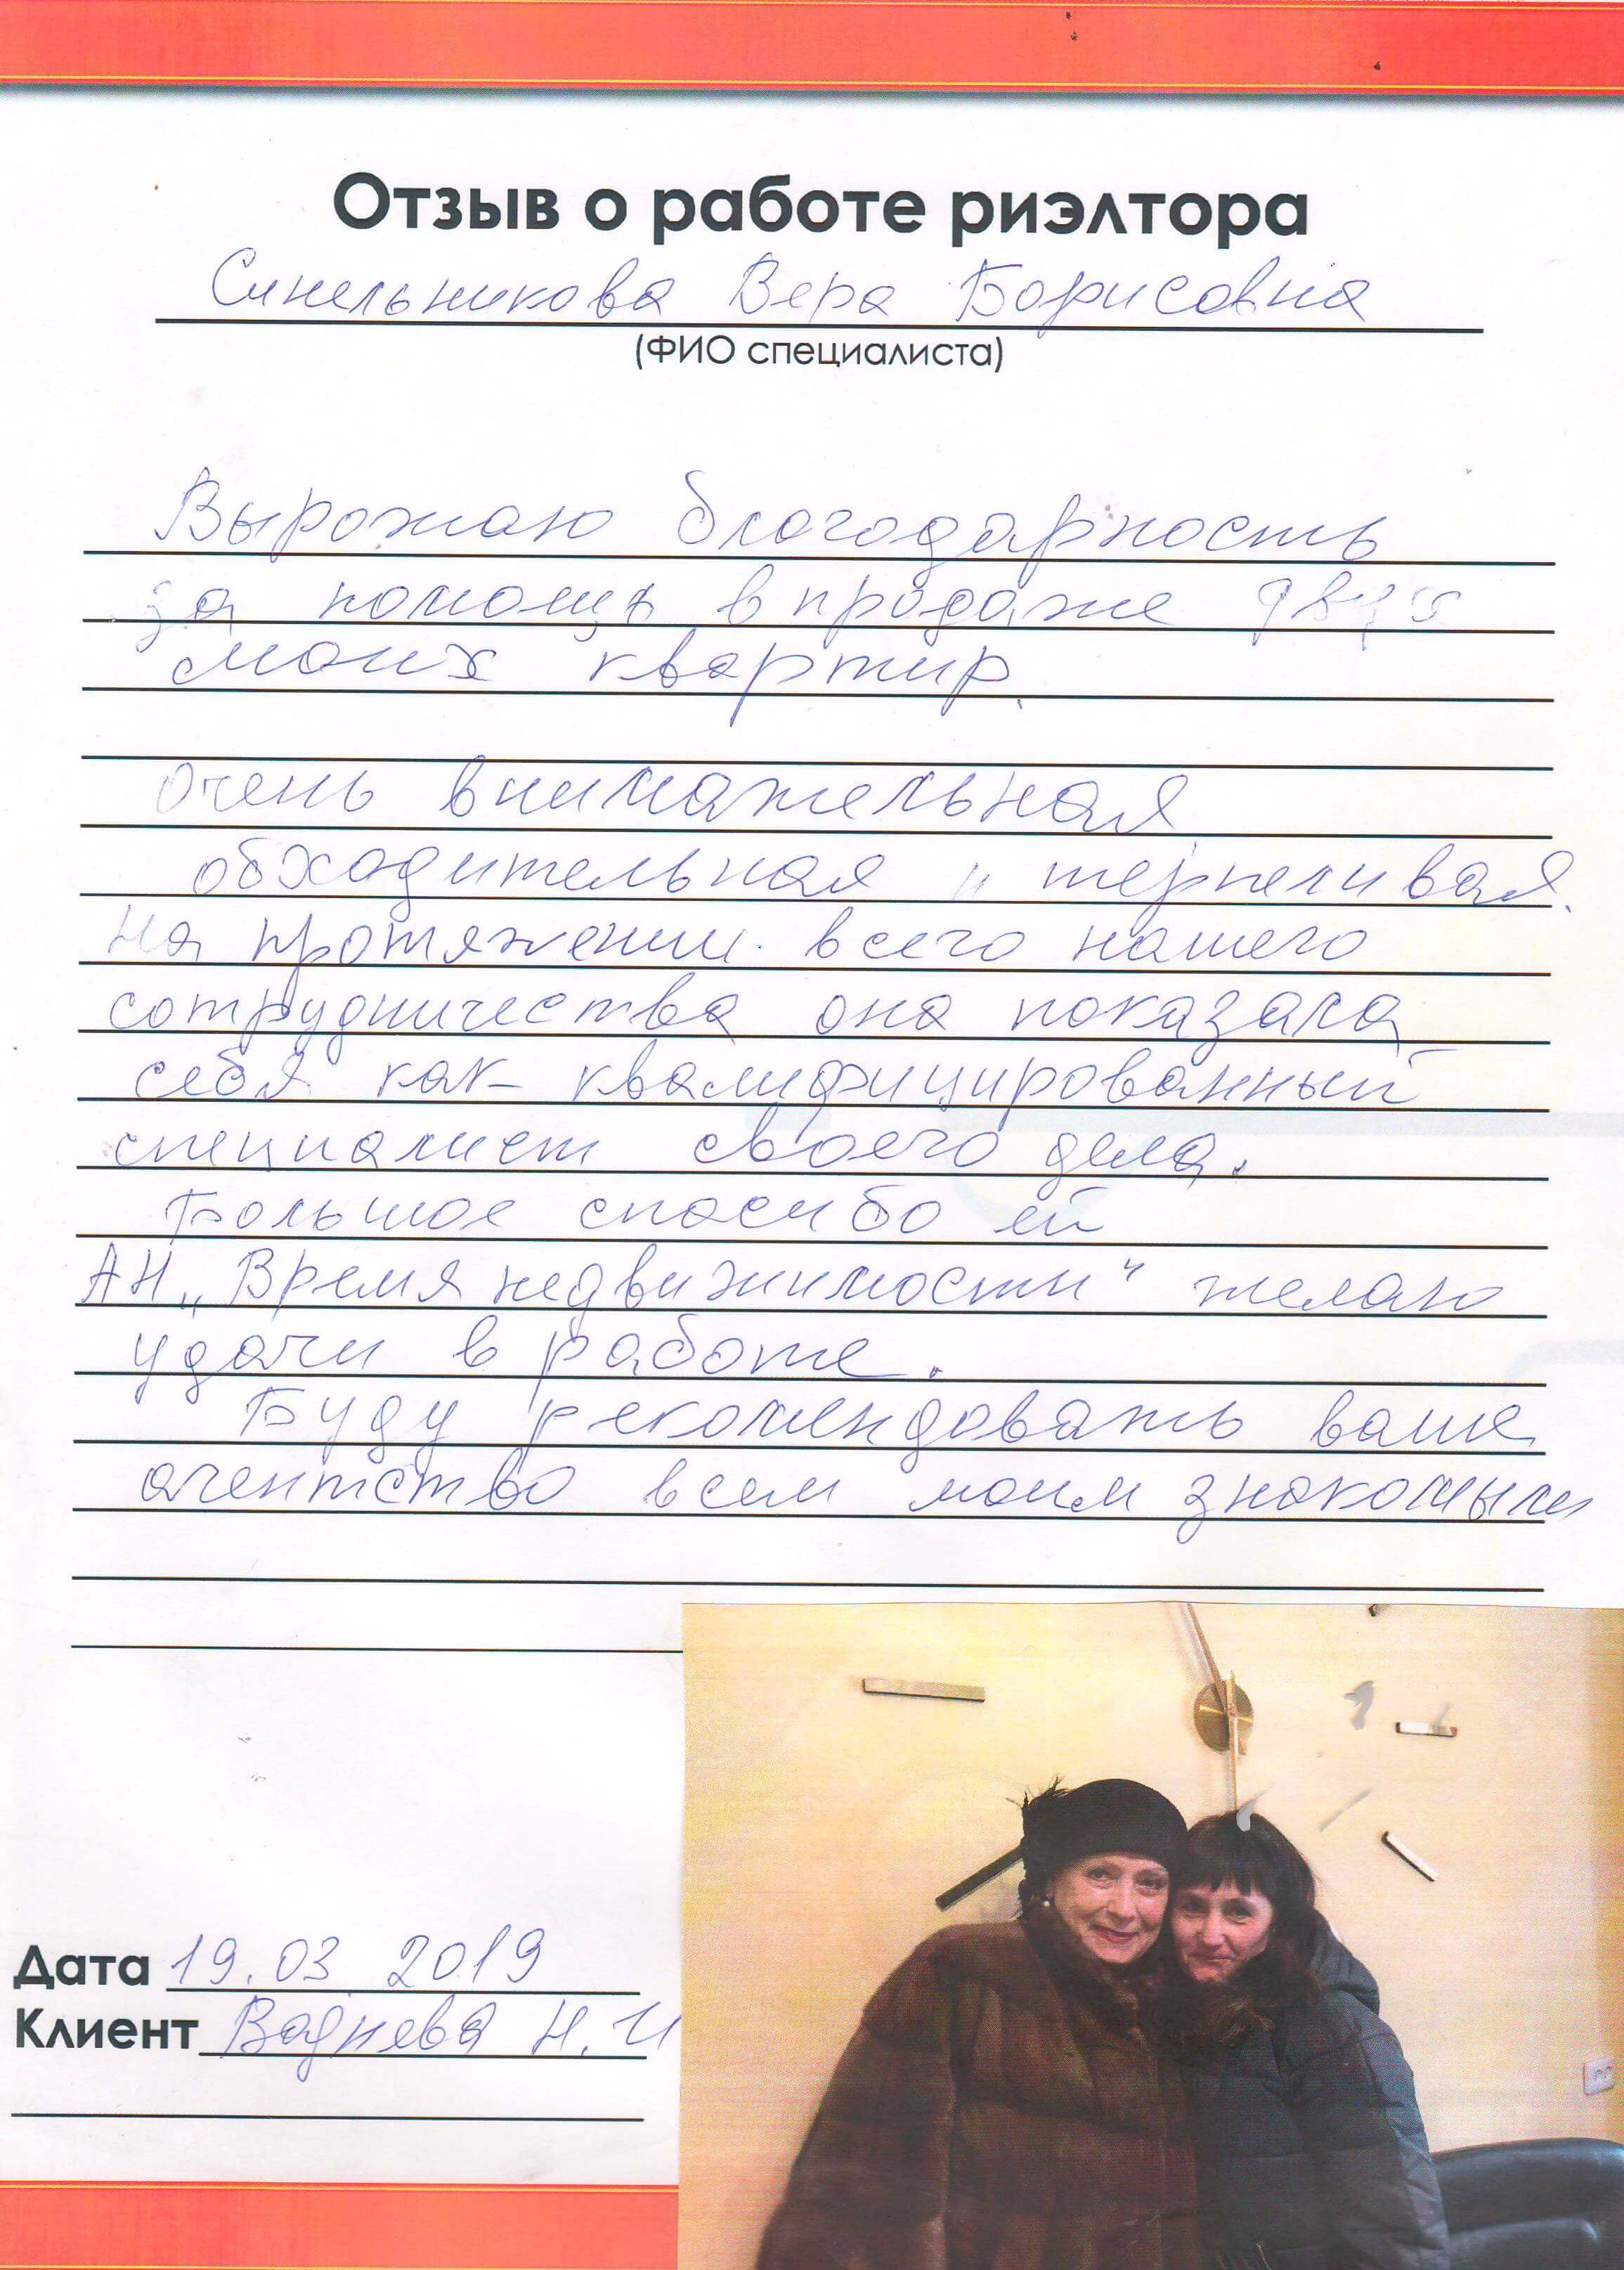 Отзыв о работе риэлтора
Синельникова Вера Борисовна
(ФИО специалиста)
Выражаю благодарность
за помощь в продаже двух
моих квартир.
Очень внимательная
обходительная и терпеливая.
На протяжении всего нашего
сотрудничества она показала
себя как квалифицированный
специалист своего дела.
Большое спасибо ей
АН „Время недвижимости“ желаю
удачи в работе.
Буду рекомендовать ваше
агентство всем моим знакомым
Дата 19.03 2019
Клиент Воднева Н.И